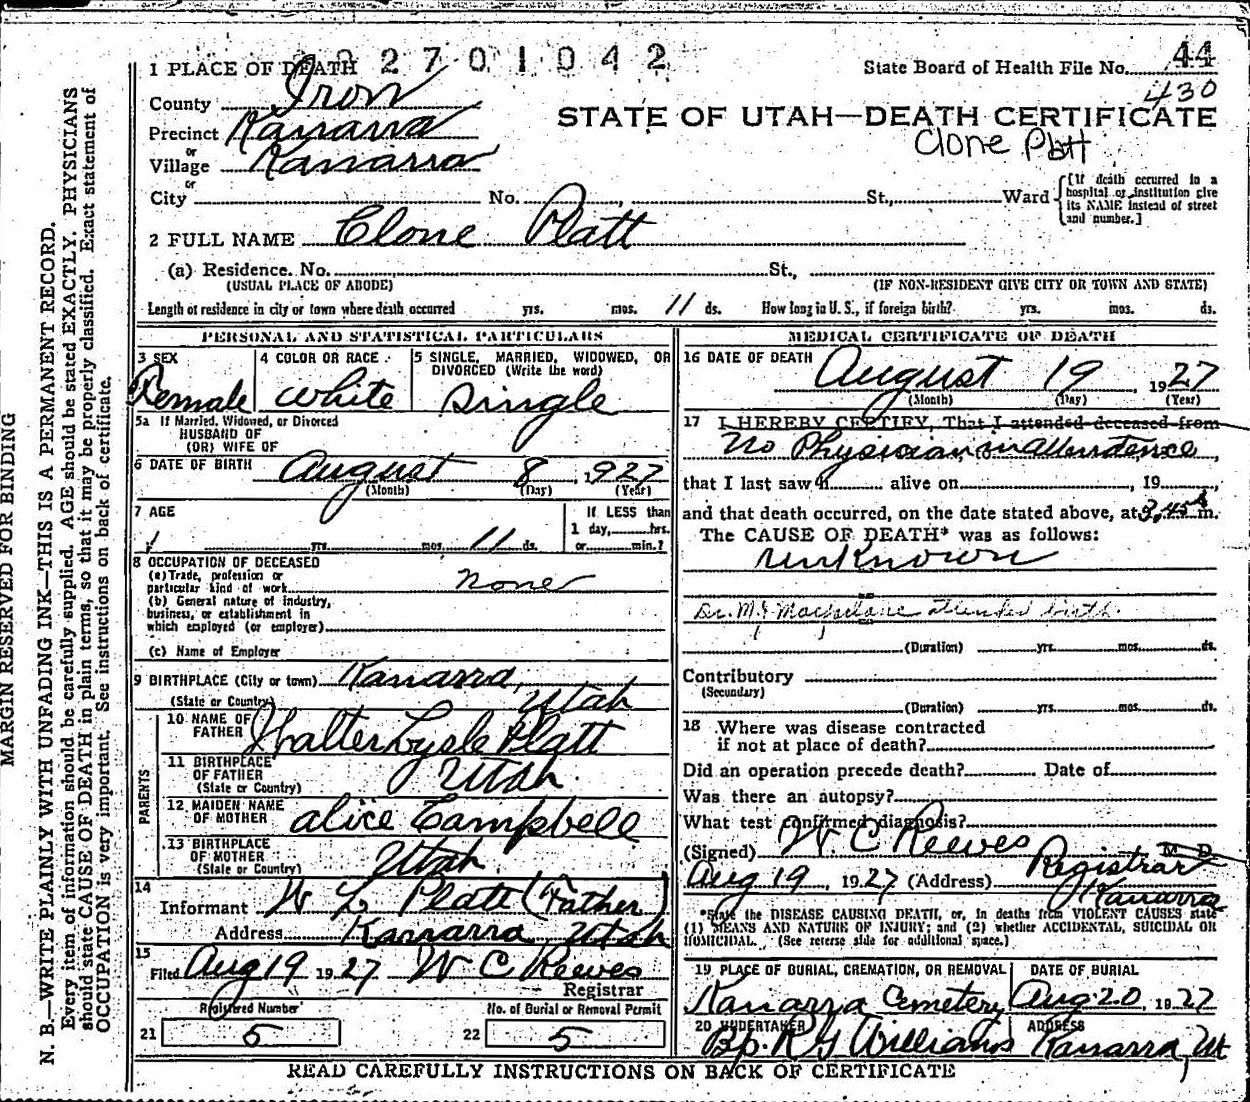 2701042
1 PLACE OF DEATH
State Board of Health File No. 44
430
County Iron
STATE OF UTAH—DEATH CERTIFICATE
Precinct Kanarra
Clone Platt
or
Village Kanarra
or
City No. St., Ward
[If death occurred in a
hospital or institution give
its NAME instead of street
and number.]
2 FULL NAME Clone Platt
(a) Residence. No. St.,
(USUAL PLACE OF ABODE) (IF NON-RESIDENT GIVE CITY OR TOWN AND STATE)
Length of residence in city or town where death occurred yrs. mos. 11 ds. How long in U. S., if foreign birth? yrs. mos. ds.
PERSONAL AND STATISTICAL PARTICULARS
3 SEX
Female
4 COLOR OR RACE
White
5 SINGLE, MARRIED, WIDOWED, OR
DIVORCED (Write the word)
Single
5a If Married, Widowed, or Divorced
HUSBAND OF
(OR) WIFE OF
6 DATE OF BIRTH August 8, 1927
(Month) (Day) (Year)
7 AGE
yrs. mos. 11 ds.
If LESS than
1 day, hrs.
or min.?
8 OCCUPATION OF DECEASED
(a) Trade, profession or
particular kind of work none
(b) General nature of industry,
business, or establishment in
which employed (or employer)
(c) Name of Employer
9 BIRTHPLACE (City or town) Kanarra,
(State or Country) Utah
PARENTS
10 NAME OF
FATHER Walter Lysle Platt
11 BIRTHPLACE
OF FATHER
(State or Country) Utah.
12 MAIDEN NAME
OF MOTHER Alice Campbell
13 BIRTHPLACE
OF MOTHER
(State or Country) Utah
14
Informant W L Platt (Father)
Address Kanarra Utah
15
Filed Aug 19 1927 W C Reeves
Registrar
Registered Number
21 5
No. of Burial or Removal Permit
22 5
MEDICAL CERTIFICATE OF DEATH
16 DATE OF DEATH August 19, 1927
(Month) (Day) (Year)
17 I HEREBY CERTIFY, That I attended deceased from
No Physician in attendence
that I last saw h alive on , 19 ,
and that death occurred, on the date stated above, at 3,45 A m.
The CAUSE OF DEATH* was as follows:
unknown
Dr. M. J. Macfarlane attended birth.
(Duration) yrs. mos. ds.
Contributory
(Secondary)
(Duration) yrs. mos. ds.
18 Where was disease contracted
if not at place of death?
Did an operation precede death? Date of
Was there an autopsy?
What test confirmed diagnosis?
(Signed) W C Reeves M D
Registrar
Aug 19, 1927 (Address) Kanarra
*State the DISEASE CAUSING DEATH, or, in deaths from VIOLENT CAUSES state
(1) MEANS AND NATURE OF INJURY; and (2) whether ACCIDENTAL, SUICIDAL OR
HOMICIDAL. (See reverse side for additional space.)
19 PLACE OF BURIAL, CREMATION, OR REMOVAL
Kanarra Cemetery
DATE OF BURIAL
Aug 20, 1927
20 UNDERTAKER
Bp. R G Williams
ADDRESS
Kanarra, Ut
READ CAREFULLY INSTRUCTIONS ON BACK OF CERTIFICATE
MARGIN RESERVED FOR BINDING
N. B.—WRITE PLAINLY WITH UNFADING INK—THIS IS A PERMANENT RECORD.
Every item of information should be carefully supplied. AGE should be stated EXACTLY. PHYSICIANS
should state CAUSE OF DEATH in plain terms, so that it may be properly classified. Exact statement of
OCCUPATION is very important. See instructions on back of certificate.